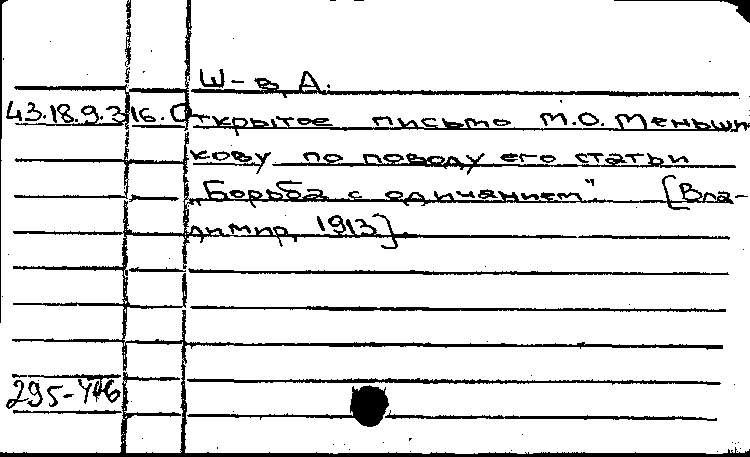 Ш-в, А.
43.18.9.3 16. Открытое письмо М.О. Меньши-
кову по поводу его статьи
„Борьба с одичанием". [Вла-
димир, 1913].
295-